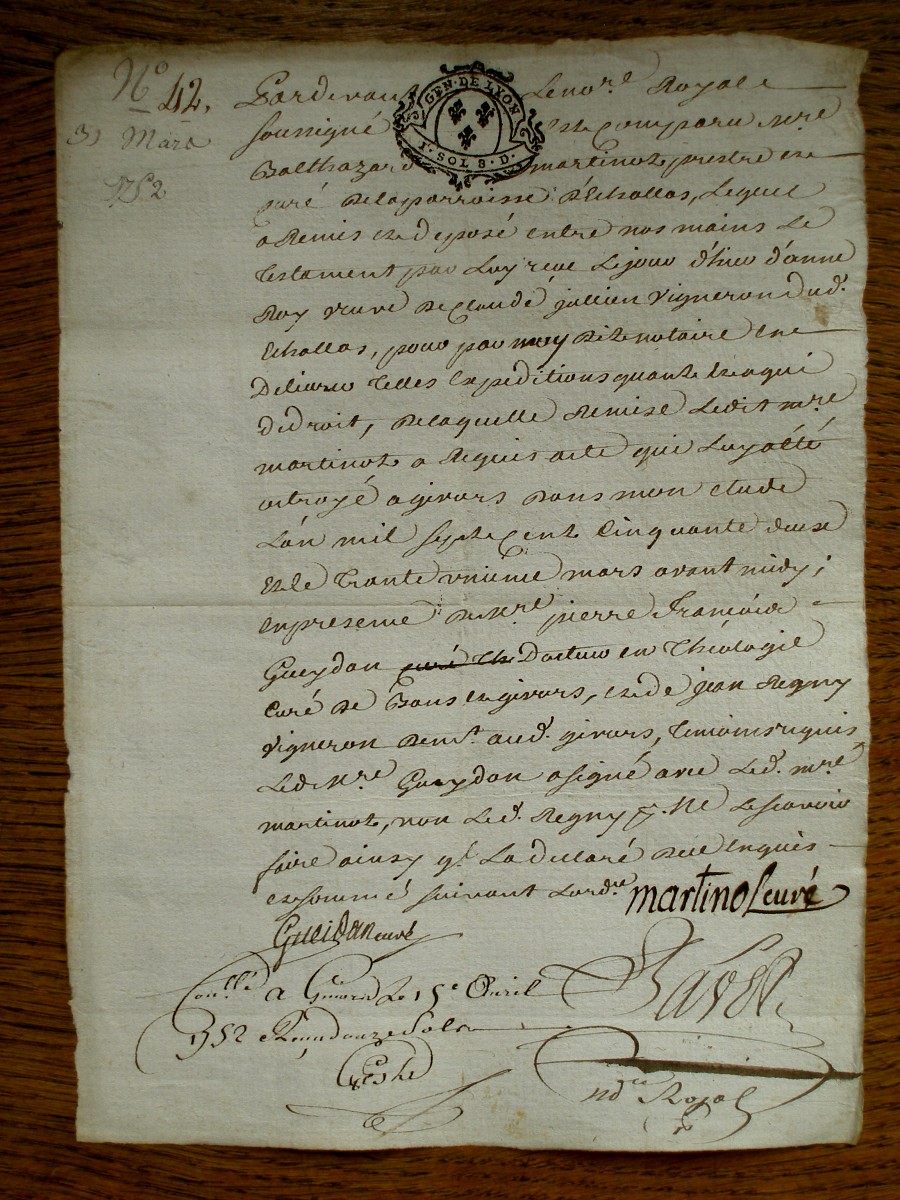 N° 42.
31 Mars
1752
GEN. DE LYON
1. SOL 8. D.
Pardevant Le no.re Royal
soussigné est comparu m.re
Balthazard martinot prestre et
curé de la parroisse d'Echallas, Lequel
a Remis et deposé entre nos mains Le
Testament par Luy reçu Le jour d'hier d'anne
Roy veuve de claude jullien vigneron dud.
Echallas, pour par moy dit notaire en
Delivrer Telles Expeditions quant et a qui
de droit, de laquelle Remise Ledit m.re
martinot a Requis acte que Luy a été
octroyé a givors dans mon etude
L'an mil sept cent cinquante deux
et le Trante unième mars avant midy;
en presence de m.re pierre François
Gueydon curé Docteur en Théologie
curé de Bans et givors, et de jean Regny
vigneron dem.t aud. givors, temoins requis
Led. m.re Gueydon a signé avec Led. m.re
martinot, non Led. Regny p. ne Le sçavoir
faire ainsy q'il La declaré de ce Enquis
et sommé suivant L'ord.re martinot curé
Gueidan curé
Con.llé a Givors Le 15e Avril
1752 Reçu douze Sols
no.re Royal